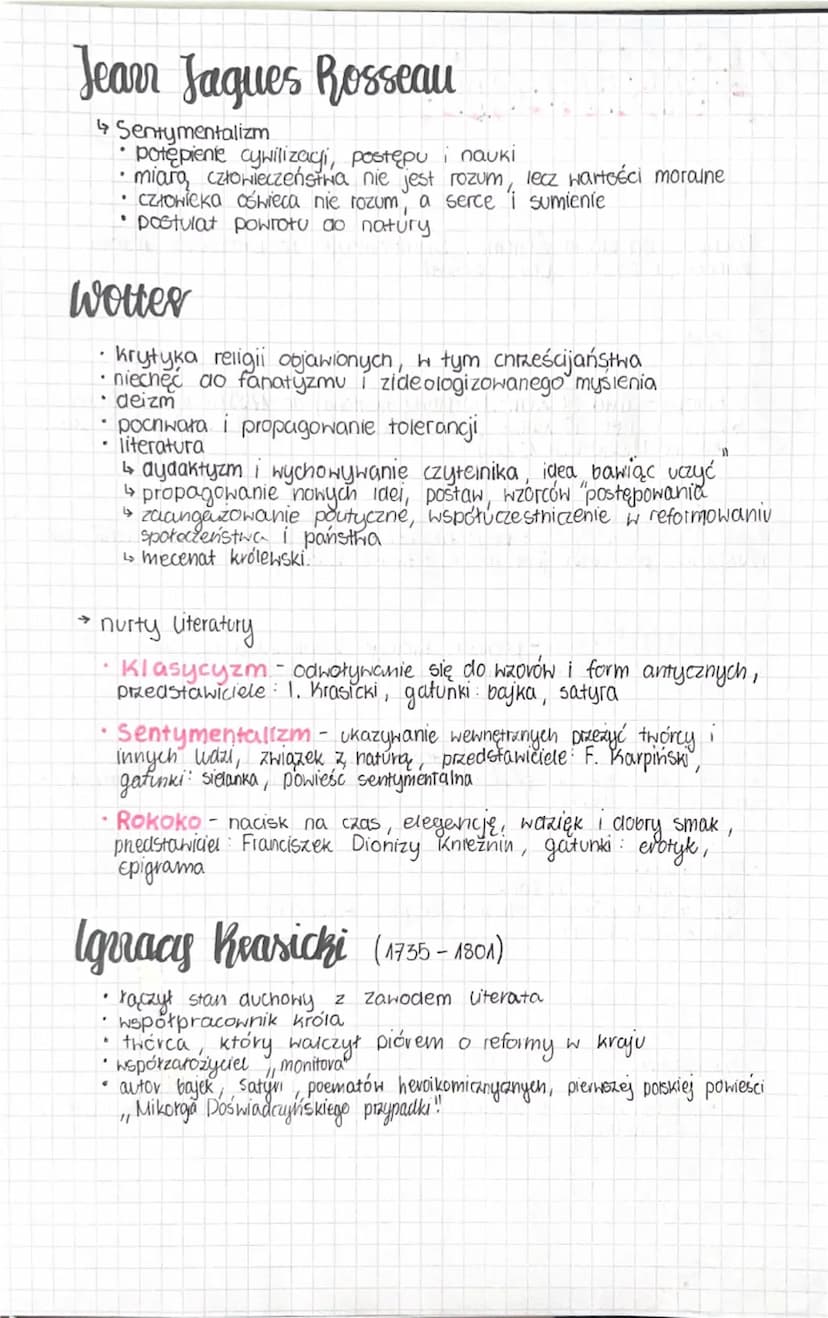 Jean Jaques Rosseau
↳ Sentymentalizm
• potępienie cywilizacji, postępu i nauki
• miarą człowieczeństwa nie jest rozum, lecz wartości moralne
• człowieka oświeca nie rozum, a serce i sumienie
• postulat powrotu do natury
Wolter
• krytyka religii objawionych, w tym chrześcijaństwa
• niechęć do fanatyzmu i zideologizowanego myślenia
• deizm
• pochwała i propagowanie tolerancji
• literatura
↳ dydaktyzm i wychowywanie czytelnika, idea „bawiąc uczyć"
↳ propagowanie nowych idei, postaw, wzorców postępowania
↳ zaangażowanie polityczne, współuczestniczenie w reformowaniu
społeczeństwa i państwa
↳ mecenat królewski.
→ nurty literatury
• Klasycyzm - odwoływanie się do wzorów i form antycznych,
przedstawiciele: I. Krasicki, gatunki: bajka, satyra
• Sentymentalizm - ukazywanie wewnętrznych przeżyć twórcy i
innych ludzi, związek z naturą, przedstawiciele: F. Karpiński,
gatunki: sielanka, powieść sentymentalna
• Rokoko - nacisk na czas, elegencję, wdzięk i dobry smak,
przedstawiciel: Franciszek Dionizy Knieźnin, gatunki: erotyk,
epigrama
Ignacy Krasicki (1735-1801)
• łączył stan duchowy z zawodem literata
• współpracownik króla
• twórca, który walczył piórem o reformy w kraju
• współzałożyciel „monitora"
• autor bajek, satyr, poematów heroikomicznycznych, pierwszej polskiej powieści
„Mikołaja Doświadczyńskiego przypadki"